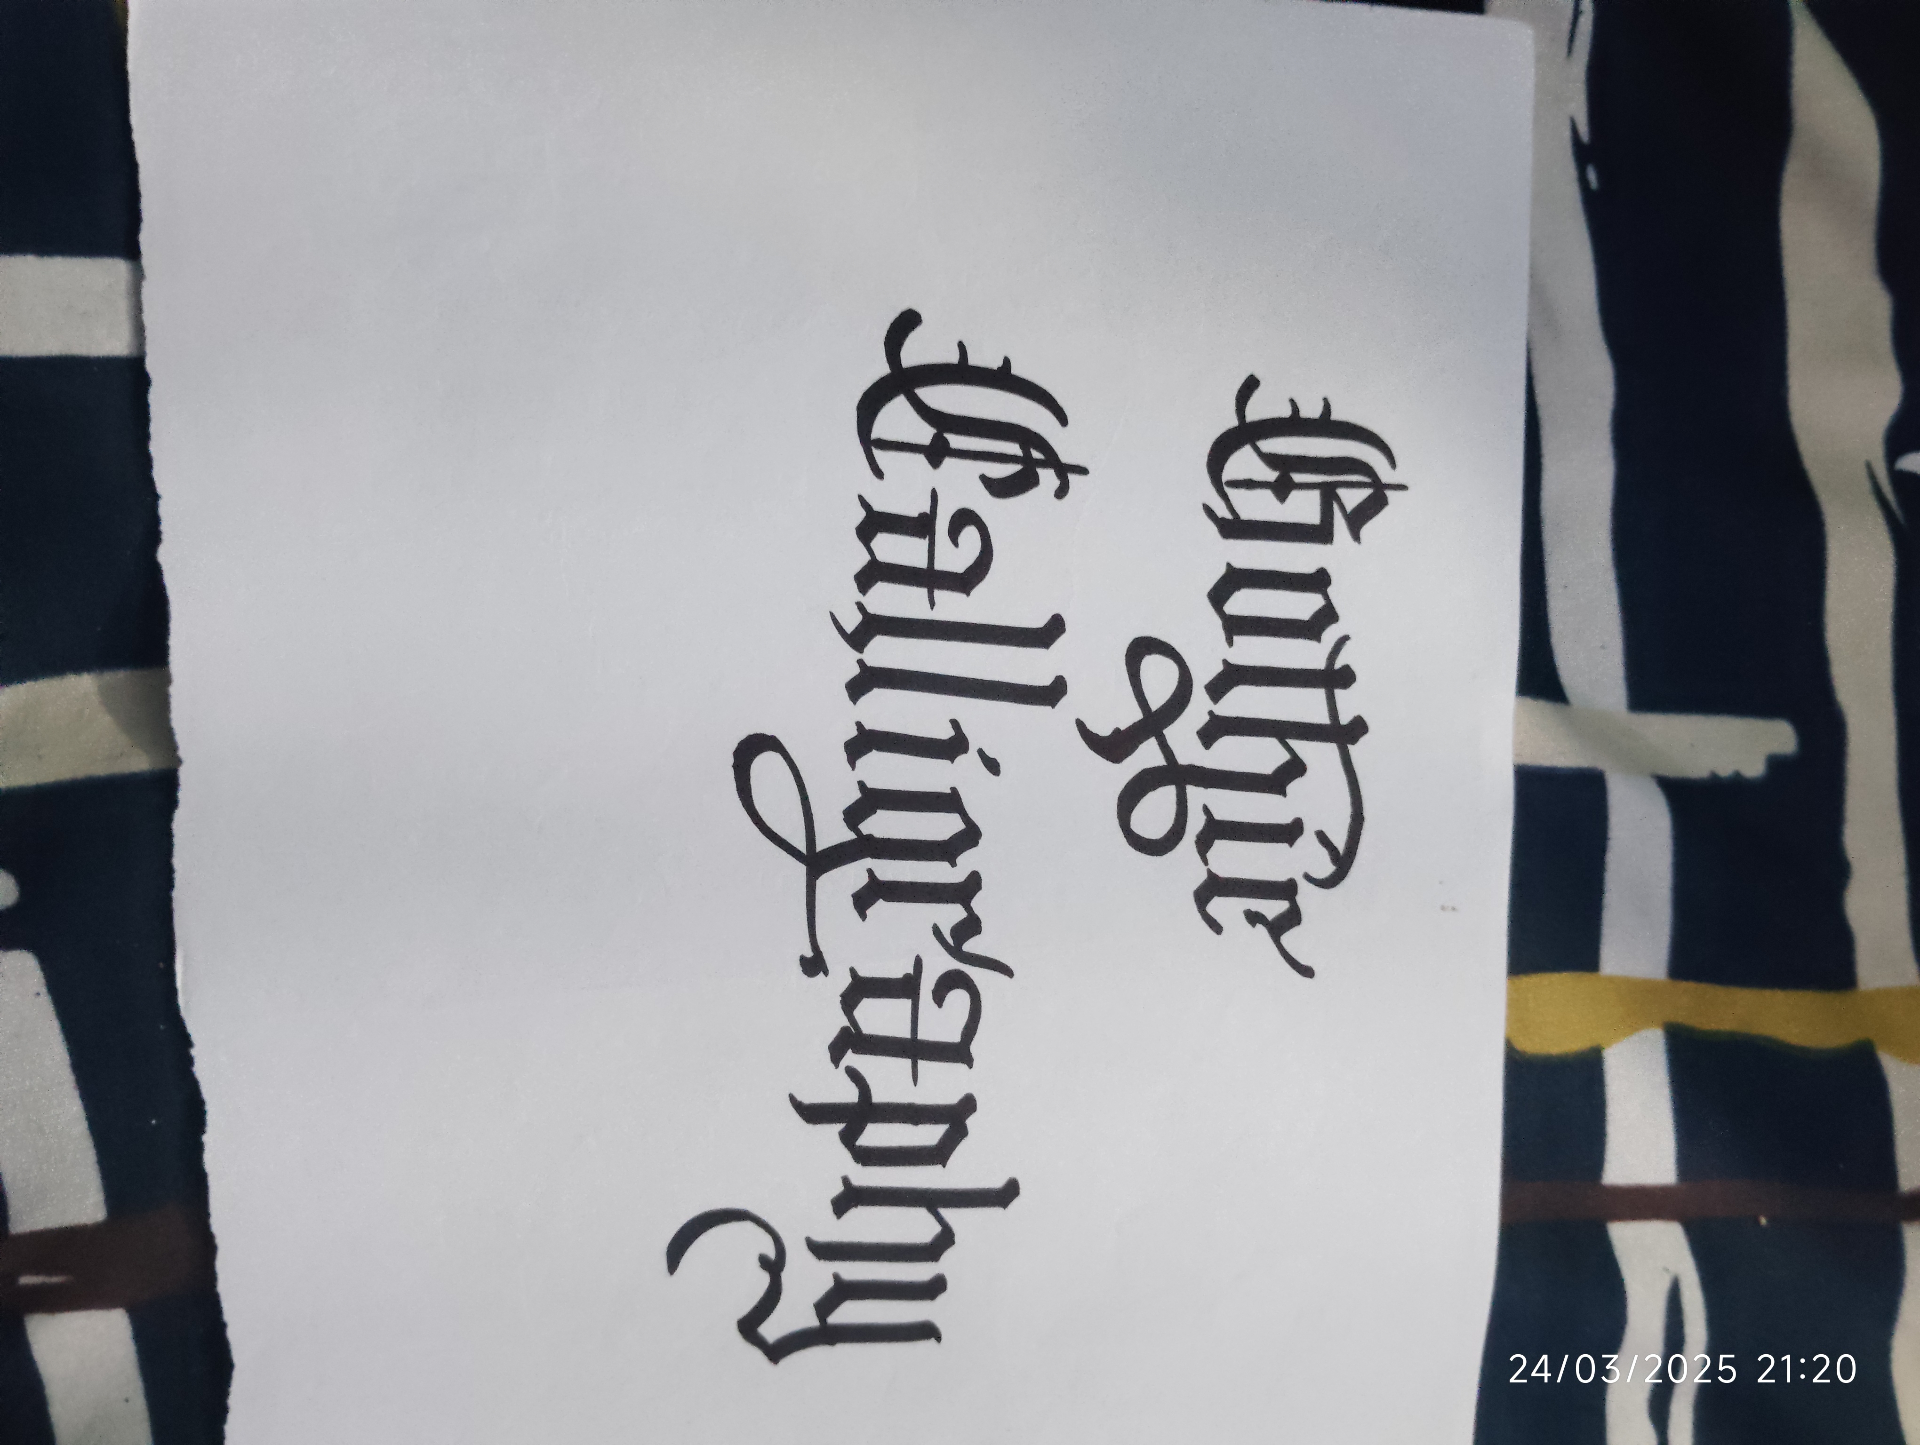 Gothic
Calligraphy
24/03/2025 21:20